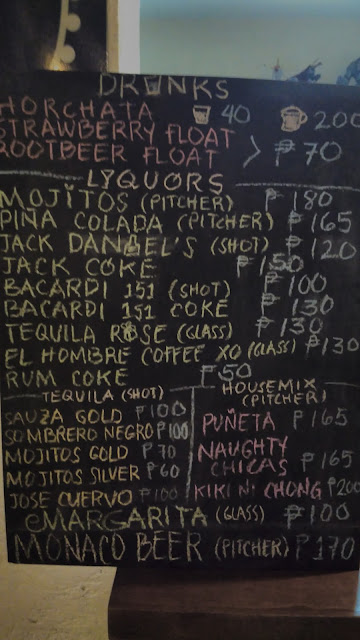 DRINKS
HORCHATA 40 200
STRAWBERRY FLOAT
ROOTBEER FLOAT > ₱ 70
LIQUORS
MOJITOS (PITCHER) ₱ 180
PIÑA COLADA (PITCHER) ₱ 165
JACK DANIEL'S (SHOT) ₱ 120
JACK COKE ₱ 150
BACARDI 151 (SHOT) ₱ 100
BACARDI 151 COKE ₱ 130
TEQUILA ROSE (GLASS) ₱ 130
EL HOMBRE COFFEE XO (GLASS) ₱ 130
RUM COKE ₱ 50
TEQUILA (SHOT)
SAUZA GOLD ₱100
SOMBRERO NEGRO ₱100
MOJITOS GOLD ₱ 70
MOJITOS SILVER ₱ 60
JOSE CUERVO ₱100
HOUSEMIX
(PITCHER)
PUÑETA ₱ 165
NAUGHTY
CHICAS ₱ 165
KIKI N' CHONG ₱200
MARGARITA (GLASS) ₱ 100
MONACO BEER (PITCHER) ₱ 170